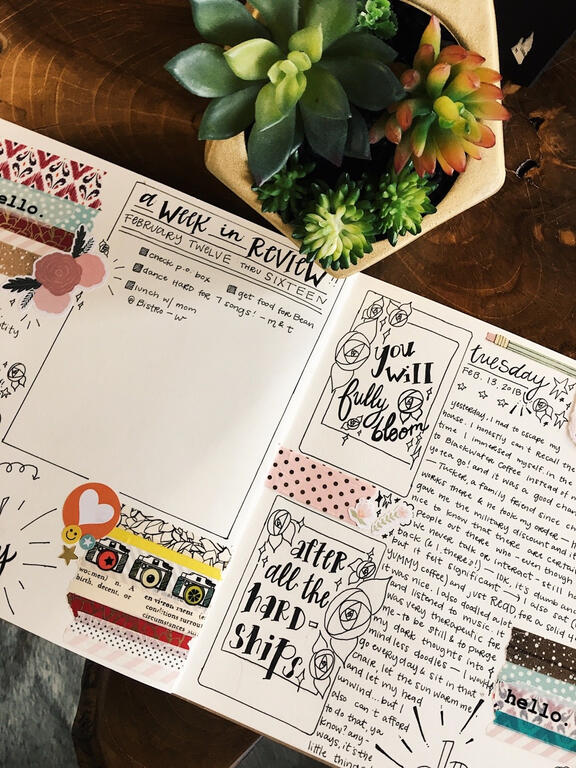 hello.
a week in Review!!
FEBRUARY TWELVE THRU SIXTEEN
check p.o. box
dance HARD for 7 songs! - m & t
lunch w/ mom
@ Bistro - W
get food for Bean
women) n. A
birth, decent, or
environment
conditions surrou
circumstances
you
will
fully
bloom
after
all the
hard-
ships
tuesday
FEB. 13, 2018
yesterday, I had to escape my
house. I honestly can't recall the
time I immersed myself in the
to Blackwater Coffee instead of
yo tea go! and it was a good chan
— Tucker, a family friend since ch
works THERE & he took my order — h
gave me the military discount and it
nice to know that there are certai
People out there who — even though
we never talk or interact — still ha
back (& I, theirs!) — 10K, it's dumb an
but it felt significant — I also sat (
YUMMY coffee) and just READ, for a solid 4
it was nice, I also doodled a lot
and listened to music. it
was very therapeutic for
me — to be still & to purge
my dark thoughts into
mindless doodles — I would
go everyday & sit in that
chair, let the sun warm me
and let my head
unwind.. but I
also can't afford
to do that, ya
know? any-
ways, it's the
little things
hello.